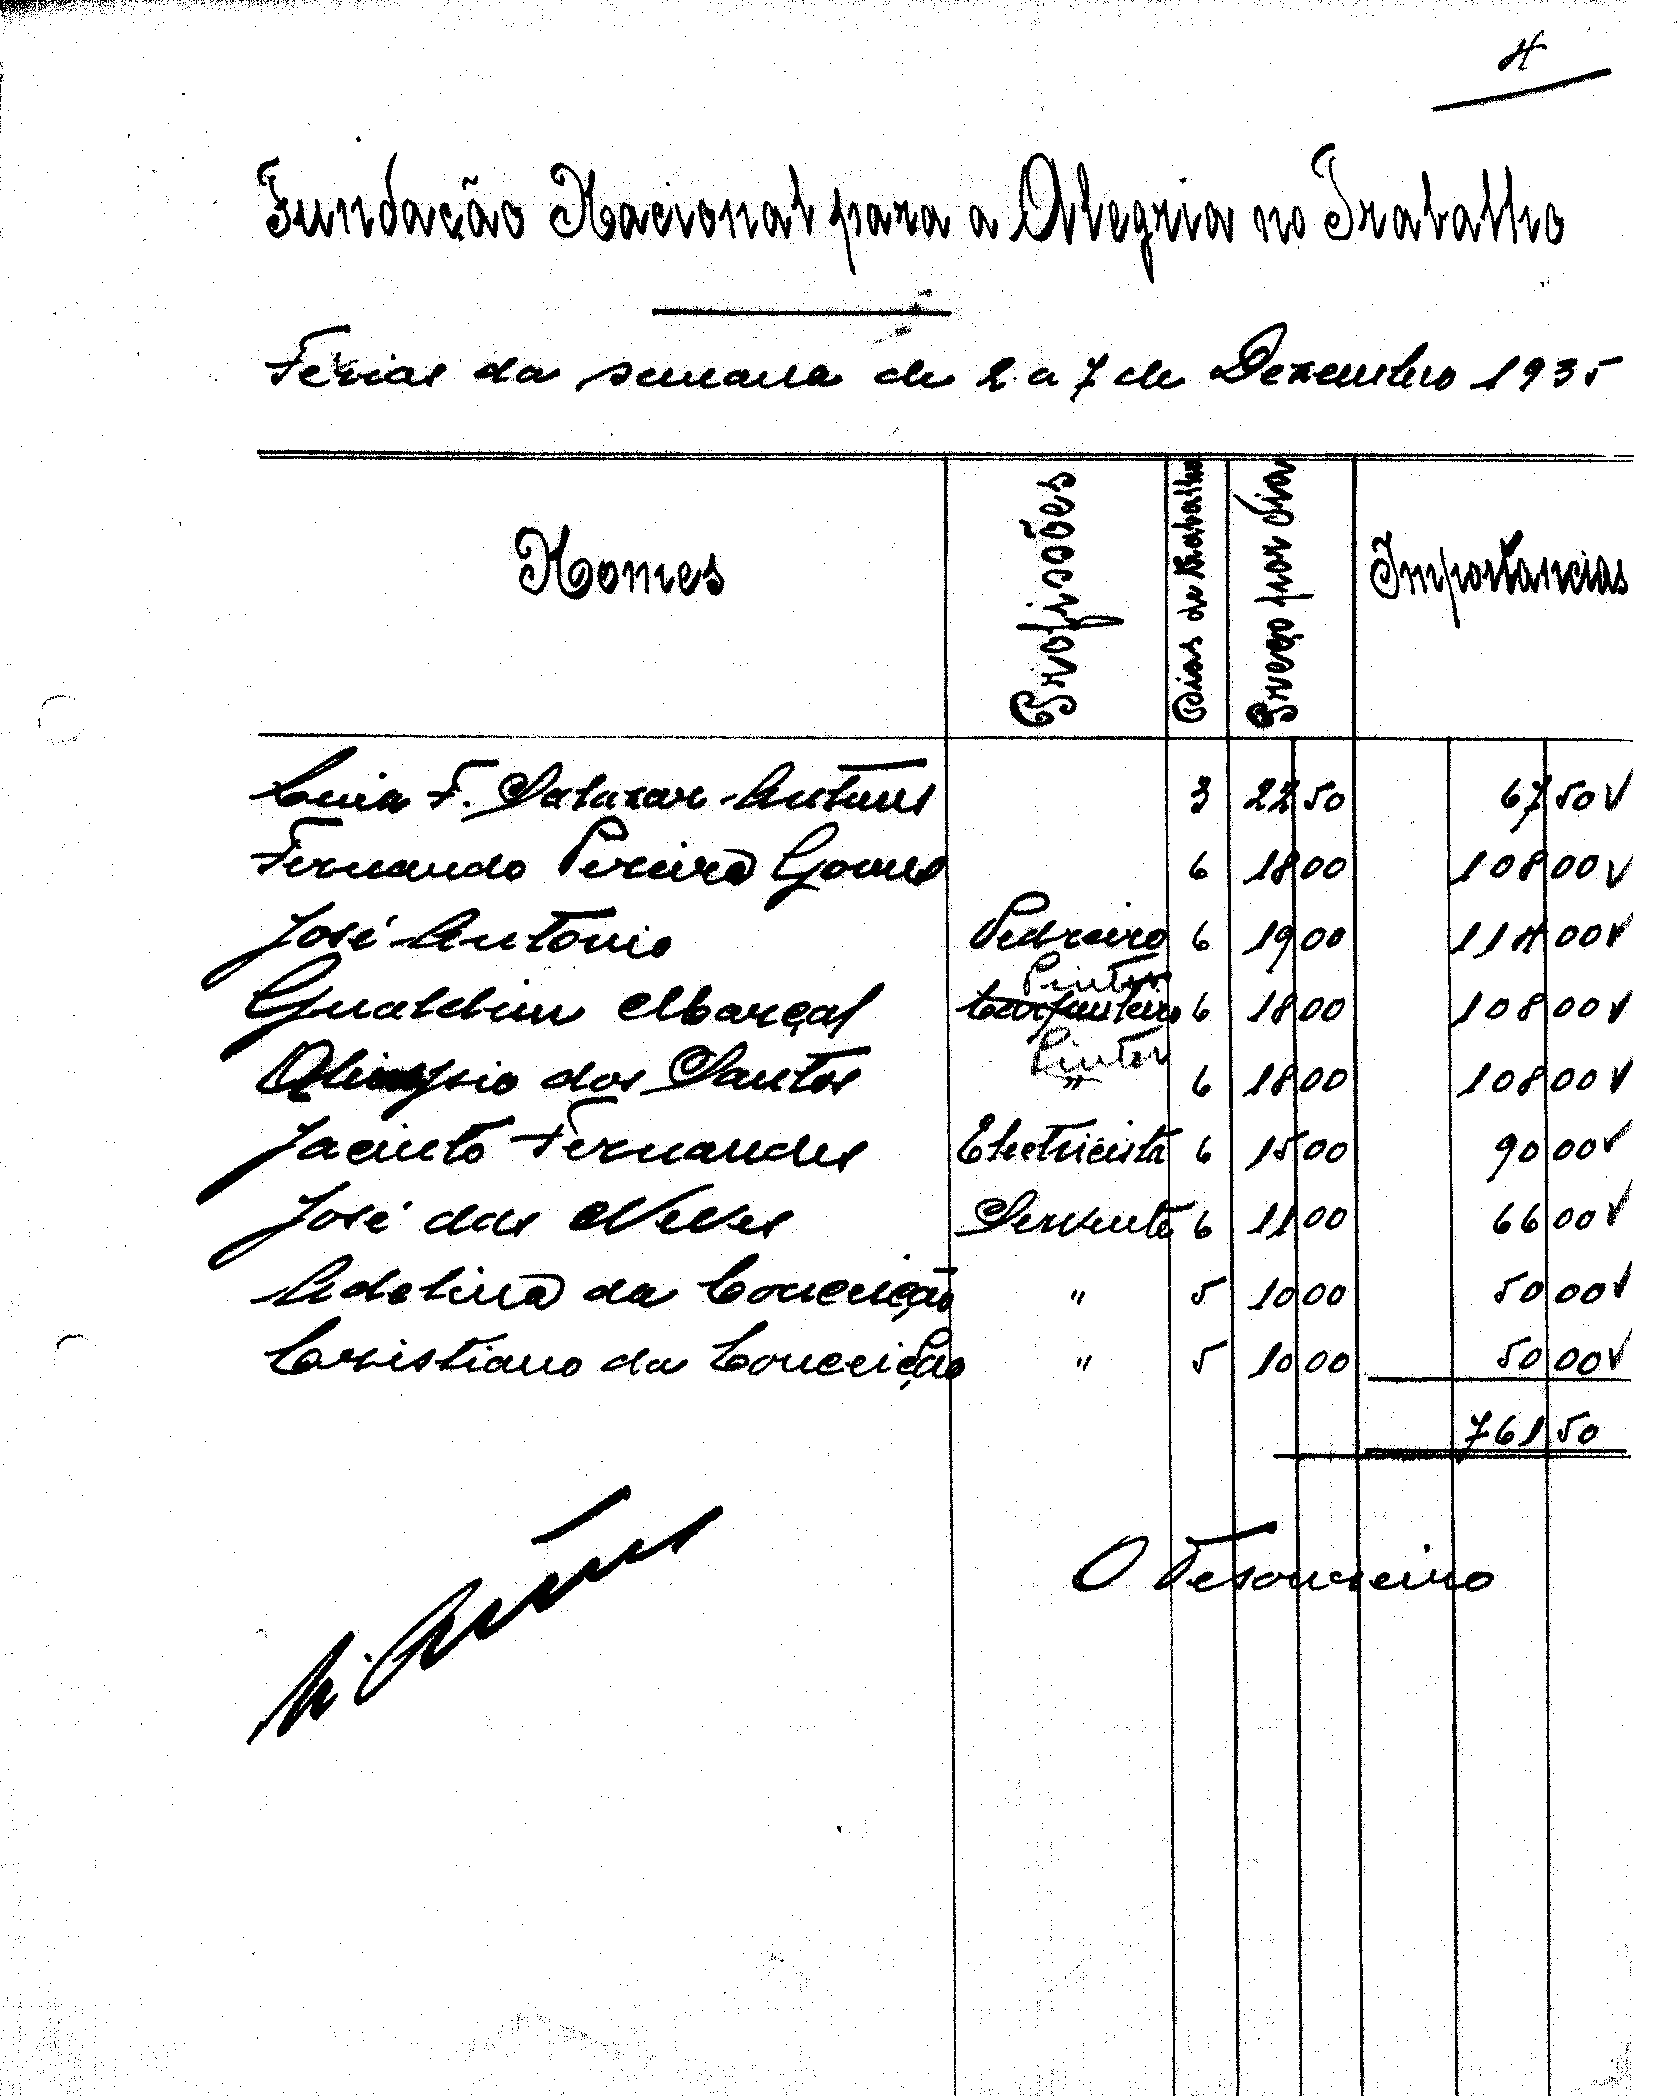 4
Fundação Nacional para a Alegria no Trabalho
Ferias da semana de 2 a 7 de Dezembro 1935
Nomes Profissões Dias de trabalho Preço por dia Importancias
Luis F. Salazar Antunes 3 22 50 67 50 V
Fernando Pereira Gomes 6 18 00 108 00 V
José Antonio Pedreiro 6 19 00 114 00 V
Pintor
Gualdim Abarçal Carpinteiro 6 18 00 108 00 V
Pintor
Olimpio dos Santos " 6 18 00 108 00 V
Jacinto Fernandes Electricista 6 15 00 90 00 V
José das Neves Servente 6 11 00 66 00 V
Adelina da Conceição " 5 10 00 50 00 V
Cristiano da Conceição " 5 10 00 50 00 V
761 50
O Tesoureiro